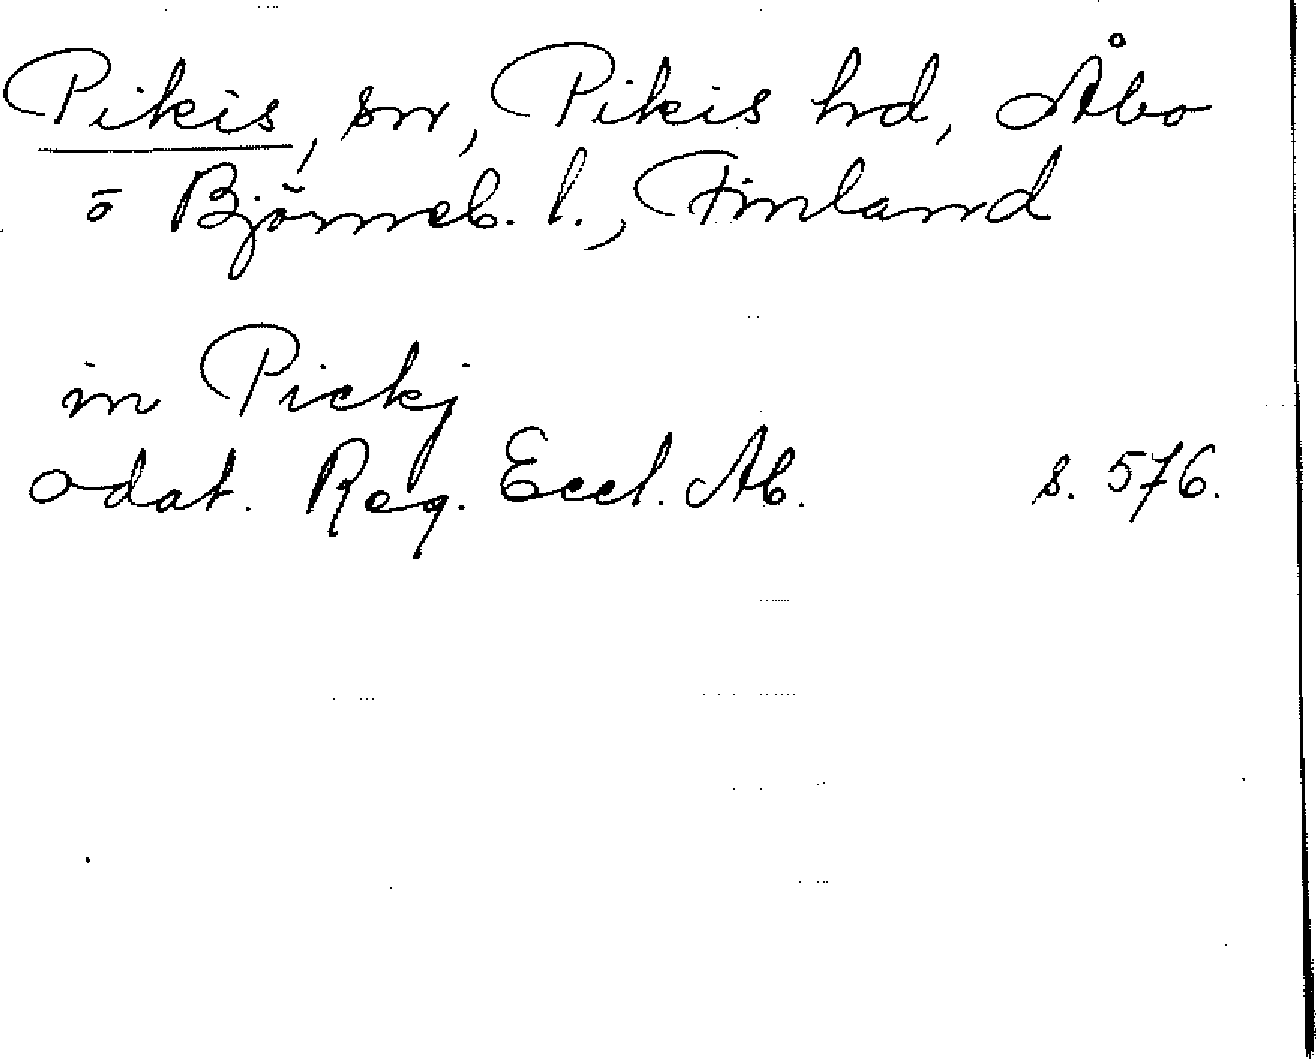 Pikis, sn, Pikis hd, Åbo
o Björneb. l., Finland
in Pickj
odat. Reg. Eccl. Ab. s. 576.